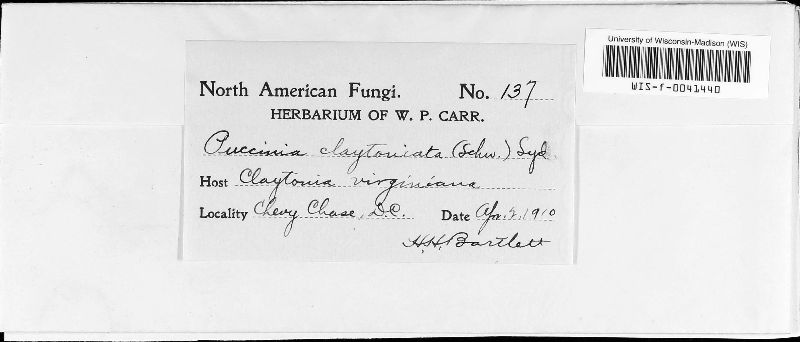 University of Wisconsin-Madison (WIS)
WIS-f-0041440
North American Fungi. No. 137
HERBARIUM OF W. P. CARR.
Puccinia claytoniata (Schw.) Syd.
Host Claytonia virginiana
Locality Chevy Chase, D.C. Date Apr. 2, 1910
H.H. Bartlett